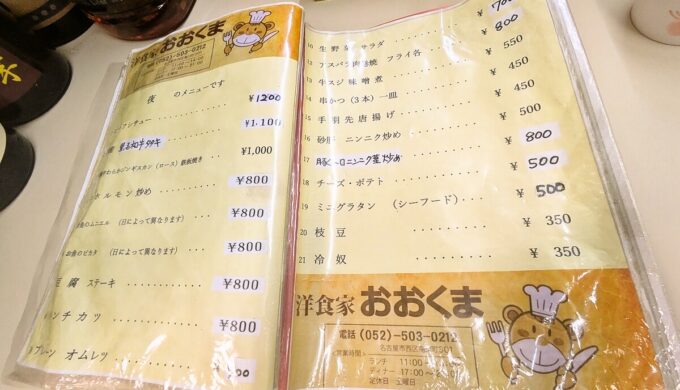 洋食家 おおくま
電話 (052)-503-0212
夜 のメニューです
シチュー ¥1200
¥1,100
ジンギスカン(ロース)鉄板焼き ¥1,000
ホルモン炒め ・・・・ ¥800
ムニエル (日によって異なります) ・・・・ ¥800
お魚のピカタ (日によって異なります) ・・・・ ¥800
豆腐 ステーキ ・・・・ ¥800
ンチカツ ・・・・ ¥800
プレーン オムレツ
10 生野菜 サラダ 700
12 アスパラ肉巻揚 フライ各 800
13 牛スジ味噌煮 550
14 串かつ(3本)一皿 450
15 手羽先唐揚げ 450
16 砂肝 ニンニク炒め 500
17 ニンニク 800
18 チーズ・ポテト ・・・・ 500
19 ミニグラタン (シーフード) ・・・・ ¥ 500
20 枝豆 ・・・・ ¥ 350
21 冷奴 ・・・・ ¥ 350
洋食家 おおくま
電話 (052)-503-0212
名古屋市西区
営業時間 ランチ 11:00~
ディナー 17:00~
定休日 土曜日